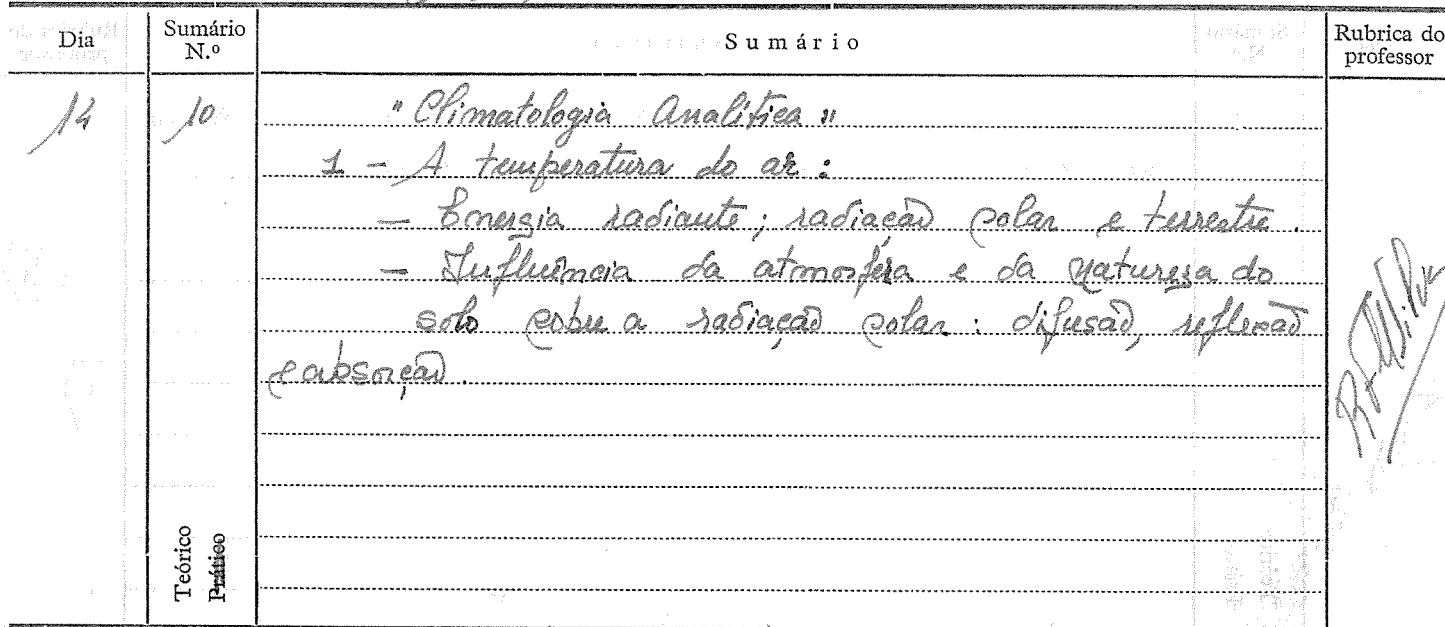 Dia
Sumário
N.º
Sumário
Rubrica do
professor
14
10
"Climatologia Analítica"
1 - A temperatura do ar:
- Energia radiante; radiação solar e terrestre.
- Influência da atmosfera e da natureza do
solo sobre a radiação solar: difusão, reflexão
e absorção.
Teórico
Prático